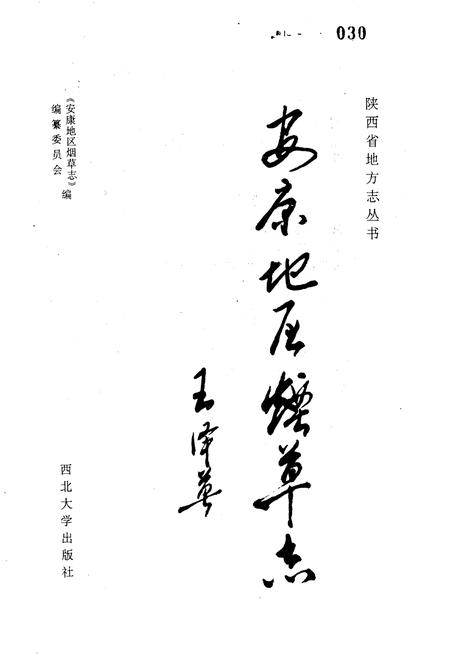 030
陕西省地方志丛书
安康地区烟草志
王泽英
《安康地区烟草志》编
编纂委员会
西北大学出版社